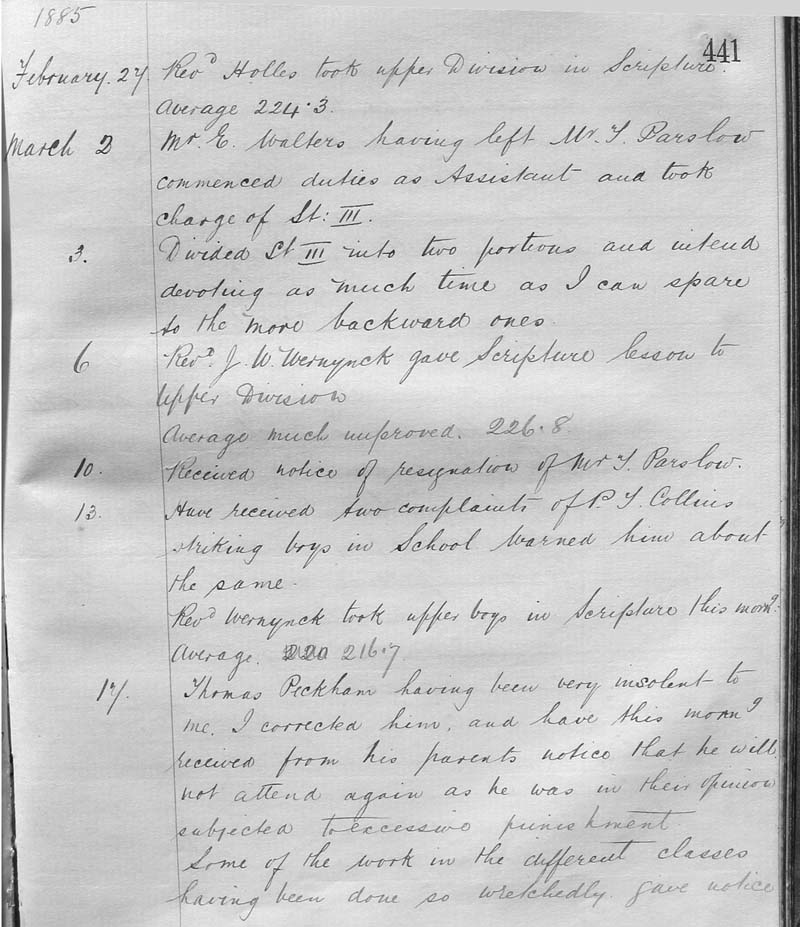 1885
441
February. 27 Revd Holles took upper Division in Scripture.
Average 224.3.
March 2 Mr. E. Walters having left Mr. T. Parslow
commenced duties as Assistant and took
charge of St: III.
3. Divided St III into two portions and intend
devoting as much time as I can spare
to the more backward ones.
6 Revd. J. W. Wernynck gave Scripture lesson to
Upper Division
Average much improved. 226.8.
10. Received notice of resignation of Mr T. Parslow.
13. Have received two complaints of P. T. Collins
striking boys in School. Warned him about
the same.
Revd Wernynck took upper boys in Scripture this morng.
Average. 216.7
17. Thomas Peckham having been very insolent to
me, I corrected him, and have this morng
received from his parents notice that he will
not attend again as he was in their opinion
subjected to excessive punishment.
Some of the work in the different classes
having been done so wretchedly. gave notice